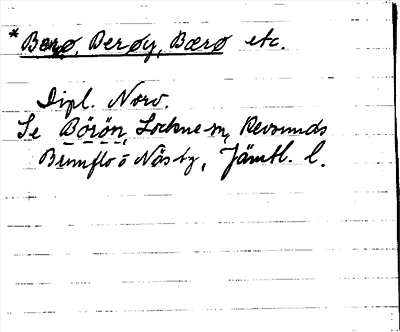 *Berø, Berøy, Bærø etc.
Dipl. Norv.
Se Börön, Lockne sn, Revsunds
Brunflo o Näs tg, Jämtl. l.